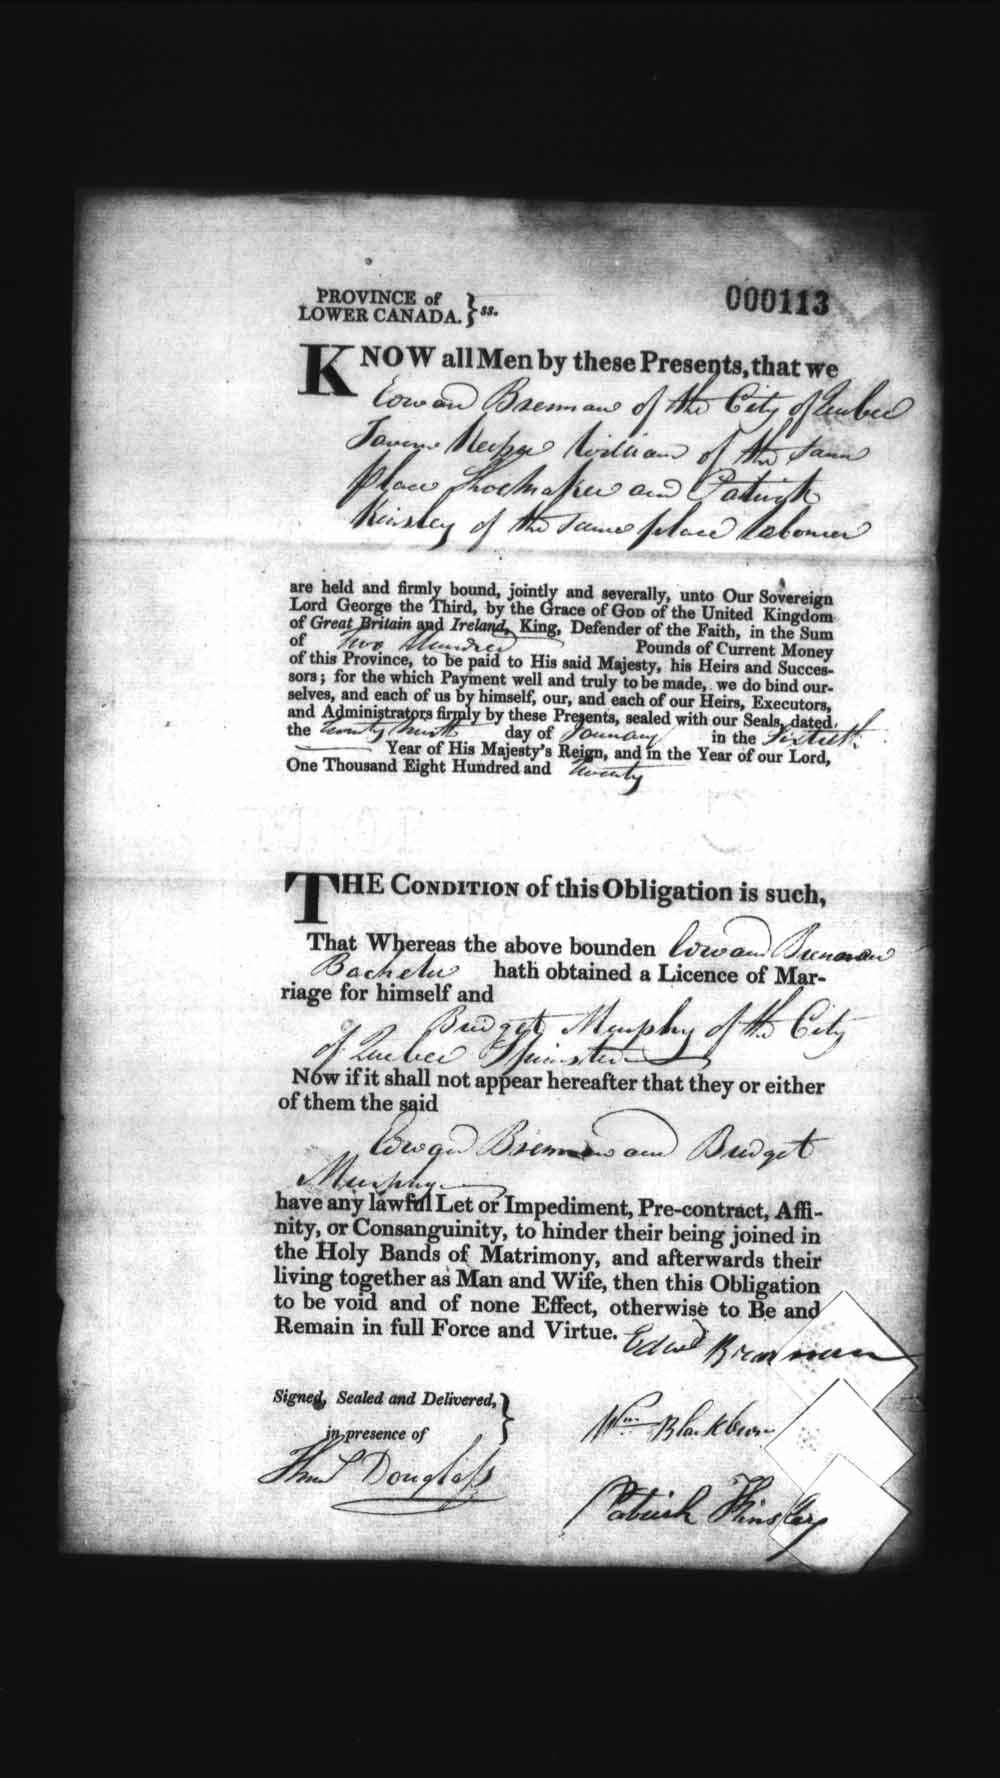 PROVINCE of
LOWER CANADA. } ss.
000113
KNOW all Men by these Presents, that we
Edward Brennan of the City of Quebec
Tavern Keeper William of the same
place Shoemaker and Patrick
Kinsley of the same place labourer
are held and firmly bound, jointly and severally, unto Our Sovereign
Lord George the Third, by the Grace of God of the United Kingdom
of Great Britain and Ireland, King, Defender of the Faith, in the Sum
of Two Hundred Pounds of Current Money
of this Province, to be paid to His said Majesty, his Heirs and Succes-
sors; for the which Payment well and truly to be made, we do bind our-
selves, and each of us by himself, our, and each of our Heirs, Executors,
and Administrators firmly by these Presents, sealed with our Seals, dated
the Twenty day of January in the Sixtieth
Year of His Majesty's Reign, and in the Year of our Lord,
One Thousand Eight Hundred and Twenty
THE CONDITION of this Obligation is such,
That Whereas the above bounden Edward Brennan
Bachelor hath obtained a Licence of Mar-
riage for himself and
Bridget Murphy of the City
of Quebec Spinster
Now if it shall not appear hereafter that they or either
of them the said
Edward Brennan and Bridget
Murphy
have any lawful Let or Impediment, Pre-contract, Affi-
nity, or Consanguinity, to hinder their being joined in
the Holy Bands of Matrimony, and afterwards their
living together as Man and Wife, then this Obligation
to be void and of none Effect, otherwise to Be and
Remain in full Force and Virtue.
Edwd Brennan
Signed, Sealed and Delivered,
in presence of }
Wm Blackburn
Thos Douglass
Patrick Kinsley